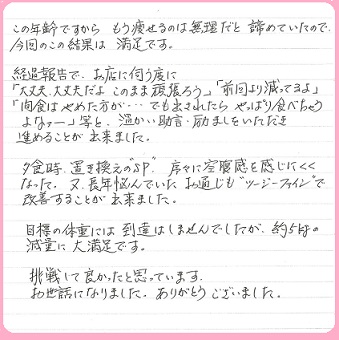 この年齢ですから もう痩せるのは無理だと 諦めていたので、
今回のこの結果は 満足です。
経過報告で、お店に伺う度に
「大丈夫、大丈夫だよ このまま頑張ろう」「前回より減ってるよ」
「肉食はやめた方が… でも出されたら やっぱり食べちゃう
よなァー」等と、温かい助言・励ましをいただき
進めることが 出来ました。
夕食時、置き換えの"SP" 序々に空腹感を感じにくく
なった。又、長年悩んでいた お通じも"ツージーファイン"で
改善することが 出来ました。
目標の体重には 到達はしませんでしたが、約5kgの
減量に 大満足です。
挑戦して良かったと思っています。
お世話になりました。ありがとう ございました。